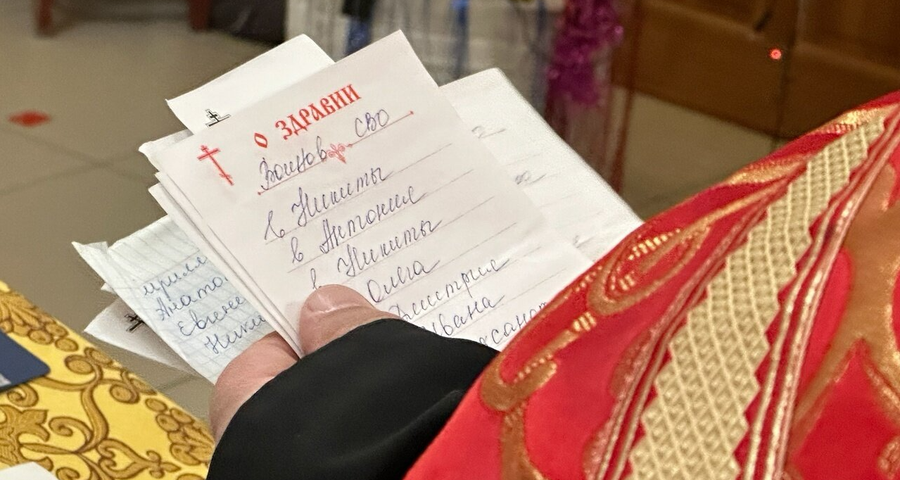 О ЗДРАВИИ
Воинов СВО
в Никиты
в Антония
в Никиты
Олега
Дмитрия
Ивана
Анато
Евгени
Ники